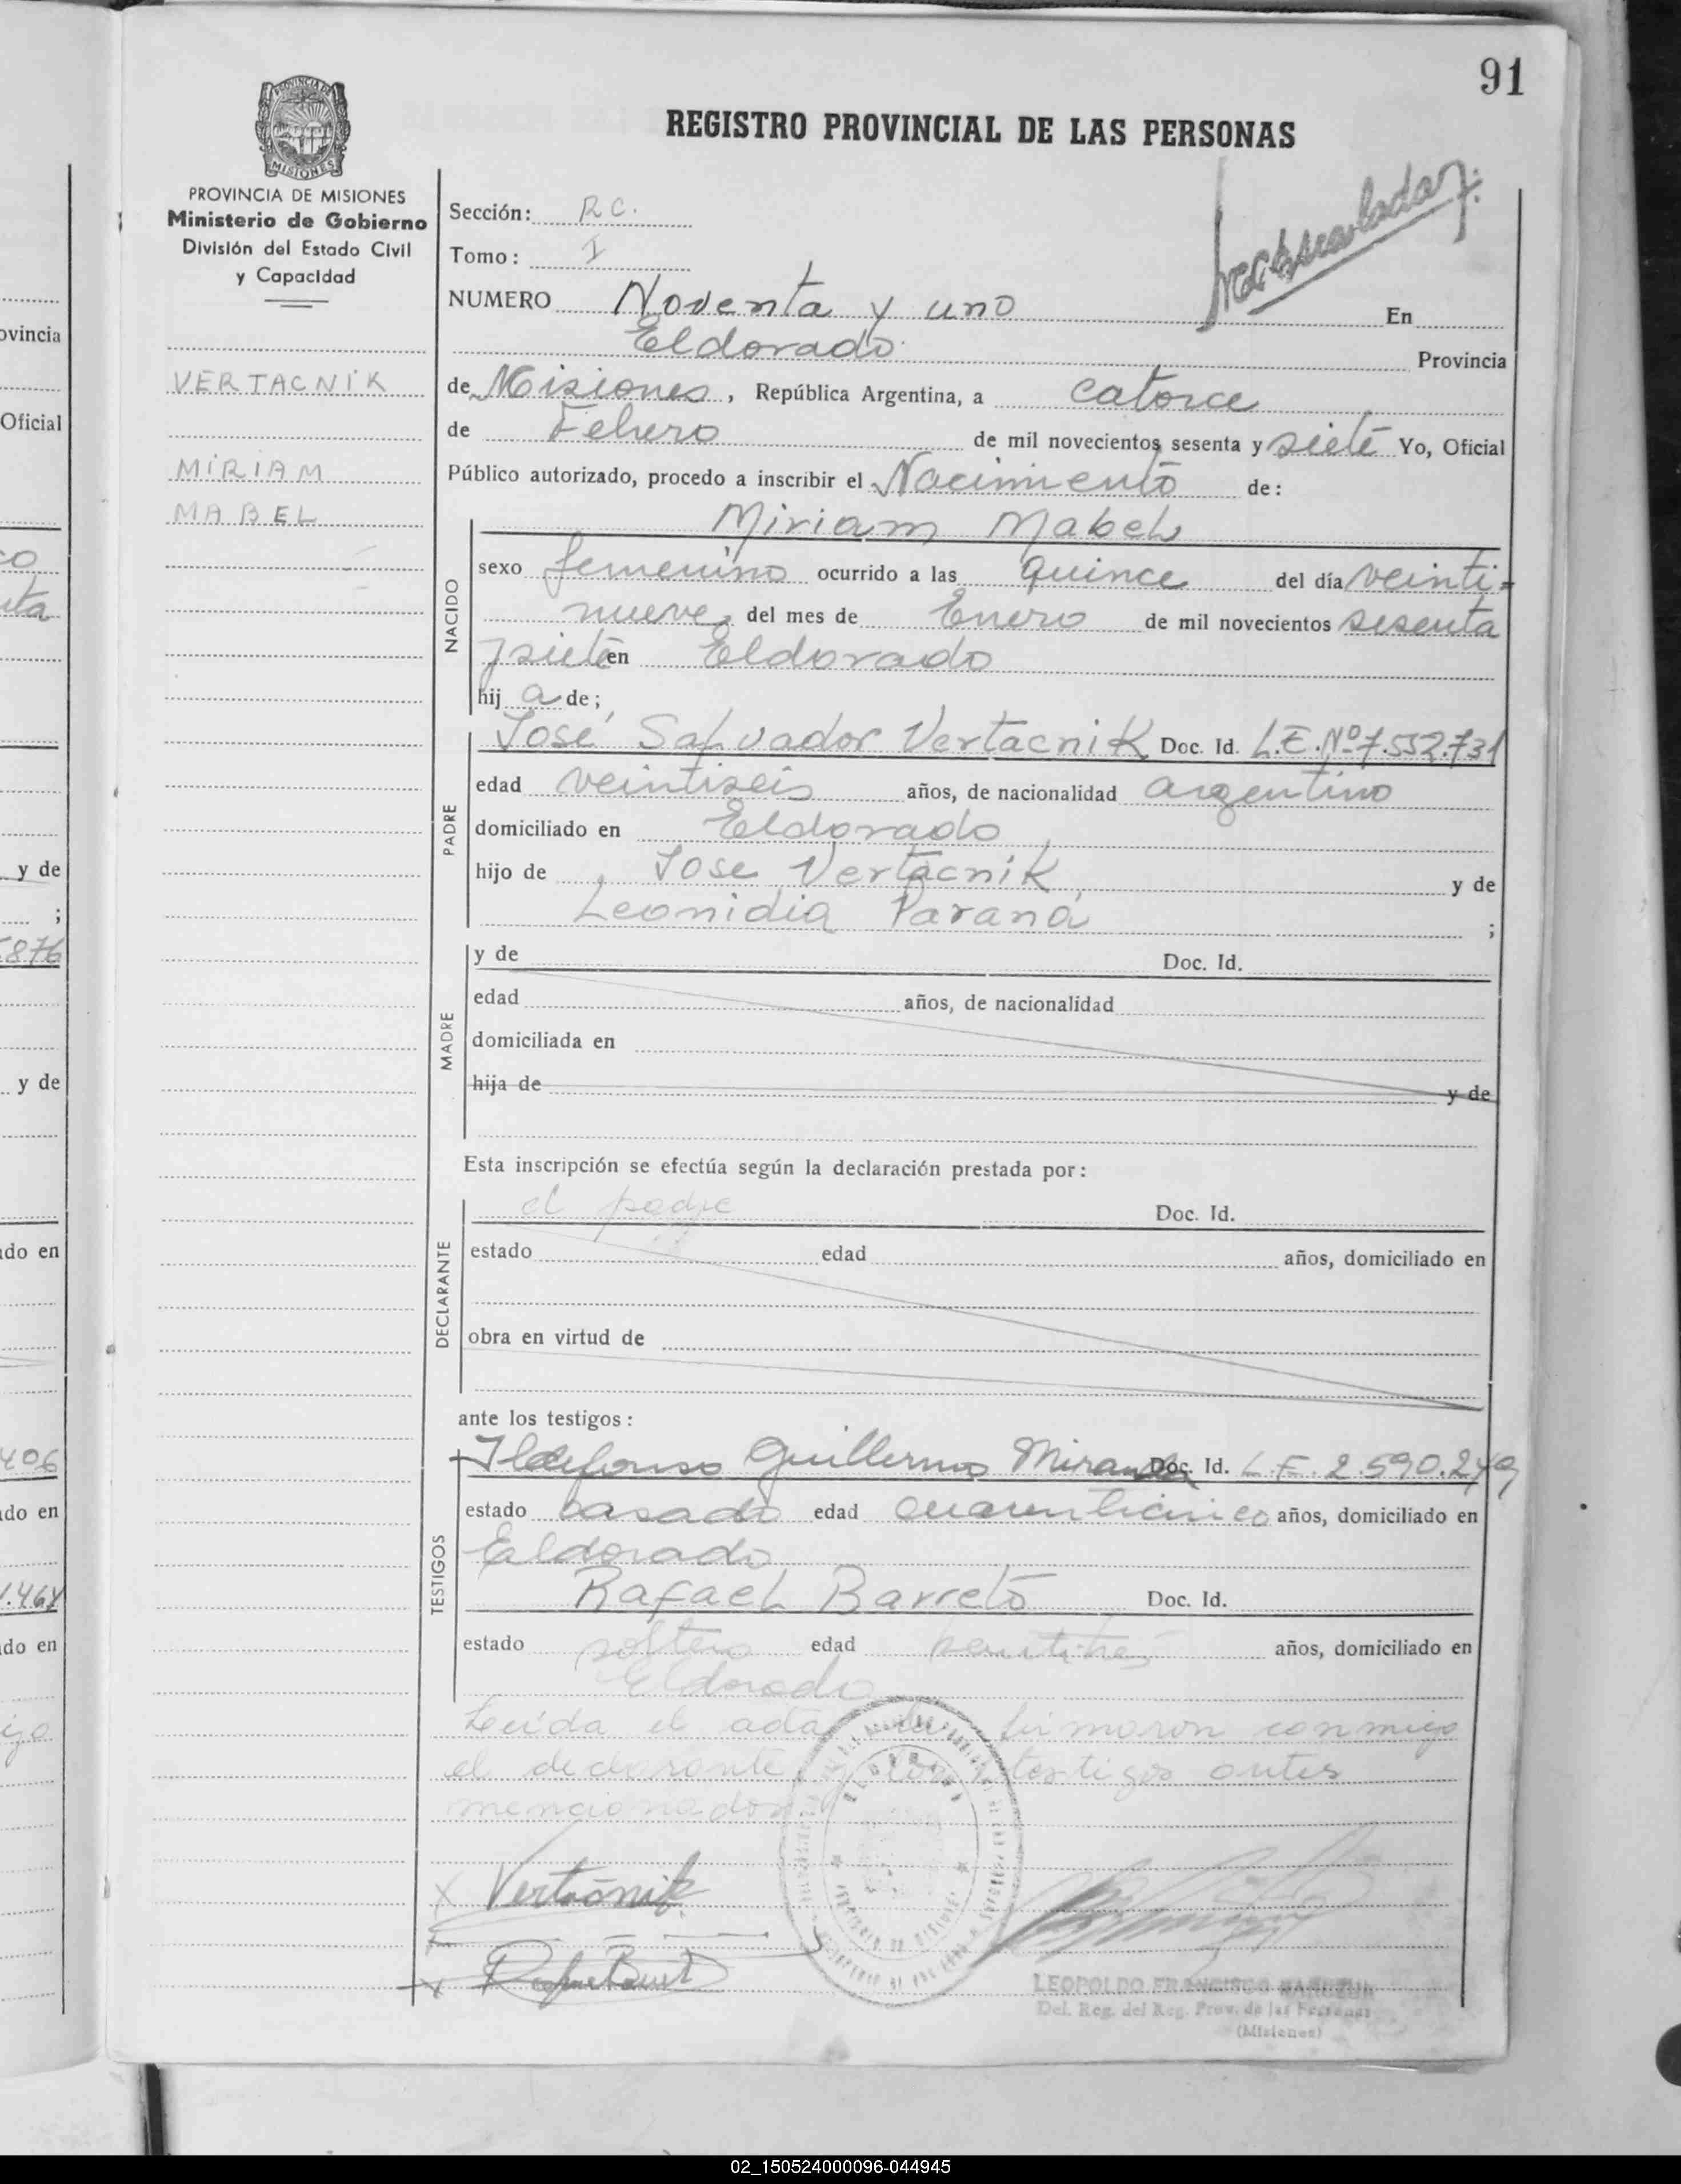 91
REGISTRO PROVINCIAL DE LAS PERSONAS
PROVINCIA DE MISIONES
Ministerio de Gobierno
División del Estado Civil
y Capacidad
VERTACNIK
MIRIAM
MABEL
Sección: R C.
Tomo: I
NUMERO Noventa y uno En
Eldorado Provincia
de Misiones, República Argentina, a catorce
de Febrero de mil novecientos sesenta y siete Yo, Oficial
Público autorizado, procedo a inscribir el Nacimiento de:
NACIDO
Miriam Mabel
sexo femenino ocurrido a las quince del día veinti-
nueve, del mes de Enero de mil novecientos sesenta
y siete en Eldorado
hij a de;
PADRE
José Salvador Vertacnik Doc. Id. L.E. Nº 7.552.731
edad veintiseis años, de nacionalidad argentino
domiciliado en Eldorado
hijo de Jose Vertacnik y de
Leonidia Paraná ;
MADRE
y de Doc. Id.
edad años, de nacionalidad
domiciliada en
hija de y de
Esta inscripción se efectúa según la declaración prestada por:
DECLARANTE
el padre Doc. Id.
estado edad años, domiciliado en
obra en virtud de
ante los testigos:
TESTIGOS
Ildefonso Guillermo Miranda Doc. Id. L.E. 2.590.249
estado casado edad cuarenticinico años, domiciliado en
Eldorado
Rafael Barreto Doc. Id.
estado soltero edad veintitres años, domiciliado en
Eldorado
Leida el acta la firmaron conmigo
el declarante y los testigos antes
mencionados.
x Vertacnik
x
LEOPOLDO FRANCISCO
Del. Reg. del Reg. Prov. de las Personas
(Misiones)
ovincia
Oficial
y de
;
876
y de
do en
406
do en
.464
do en
02_150524000096-044945